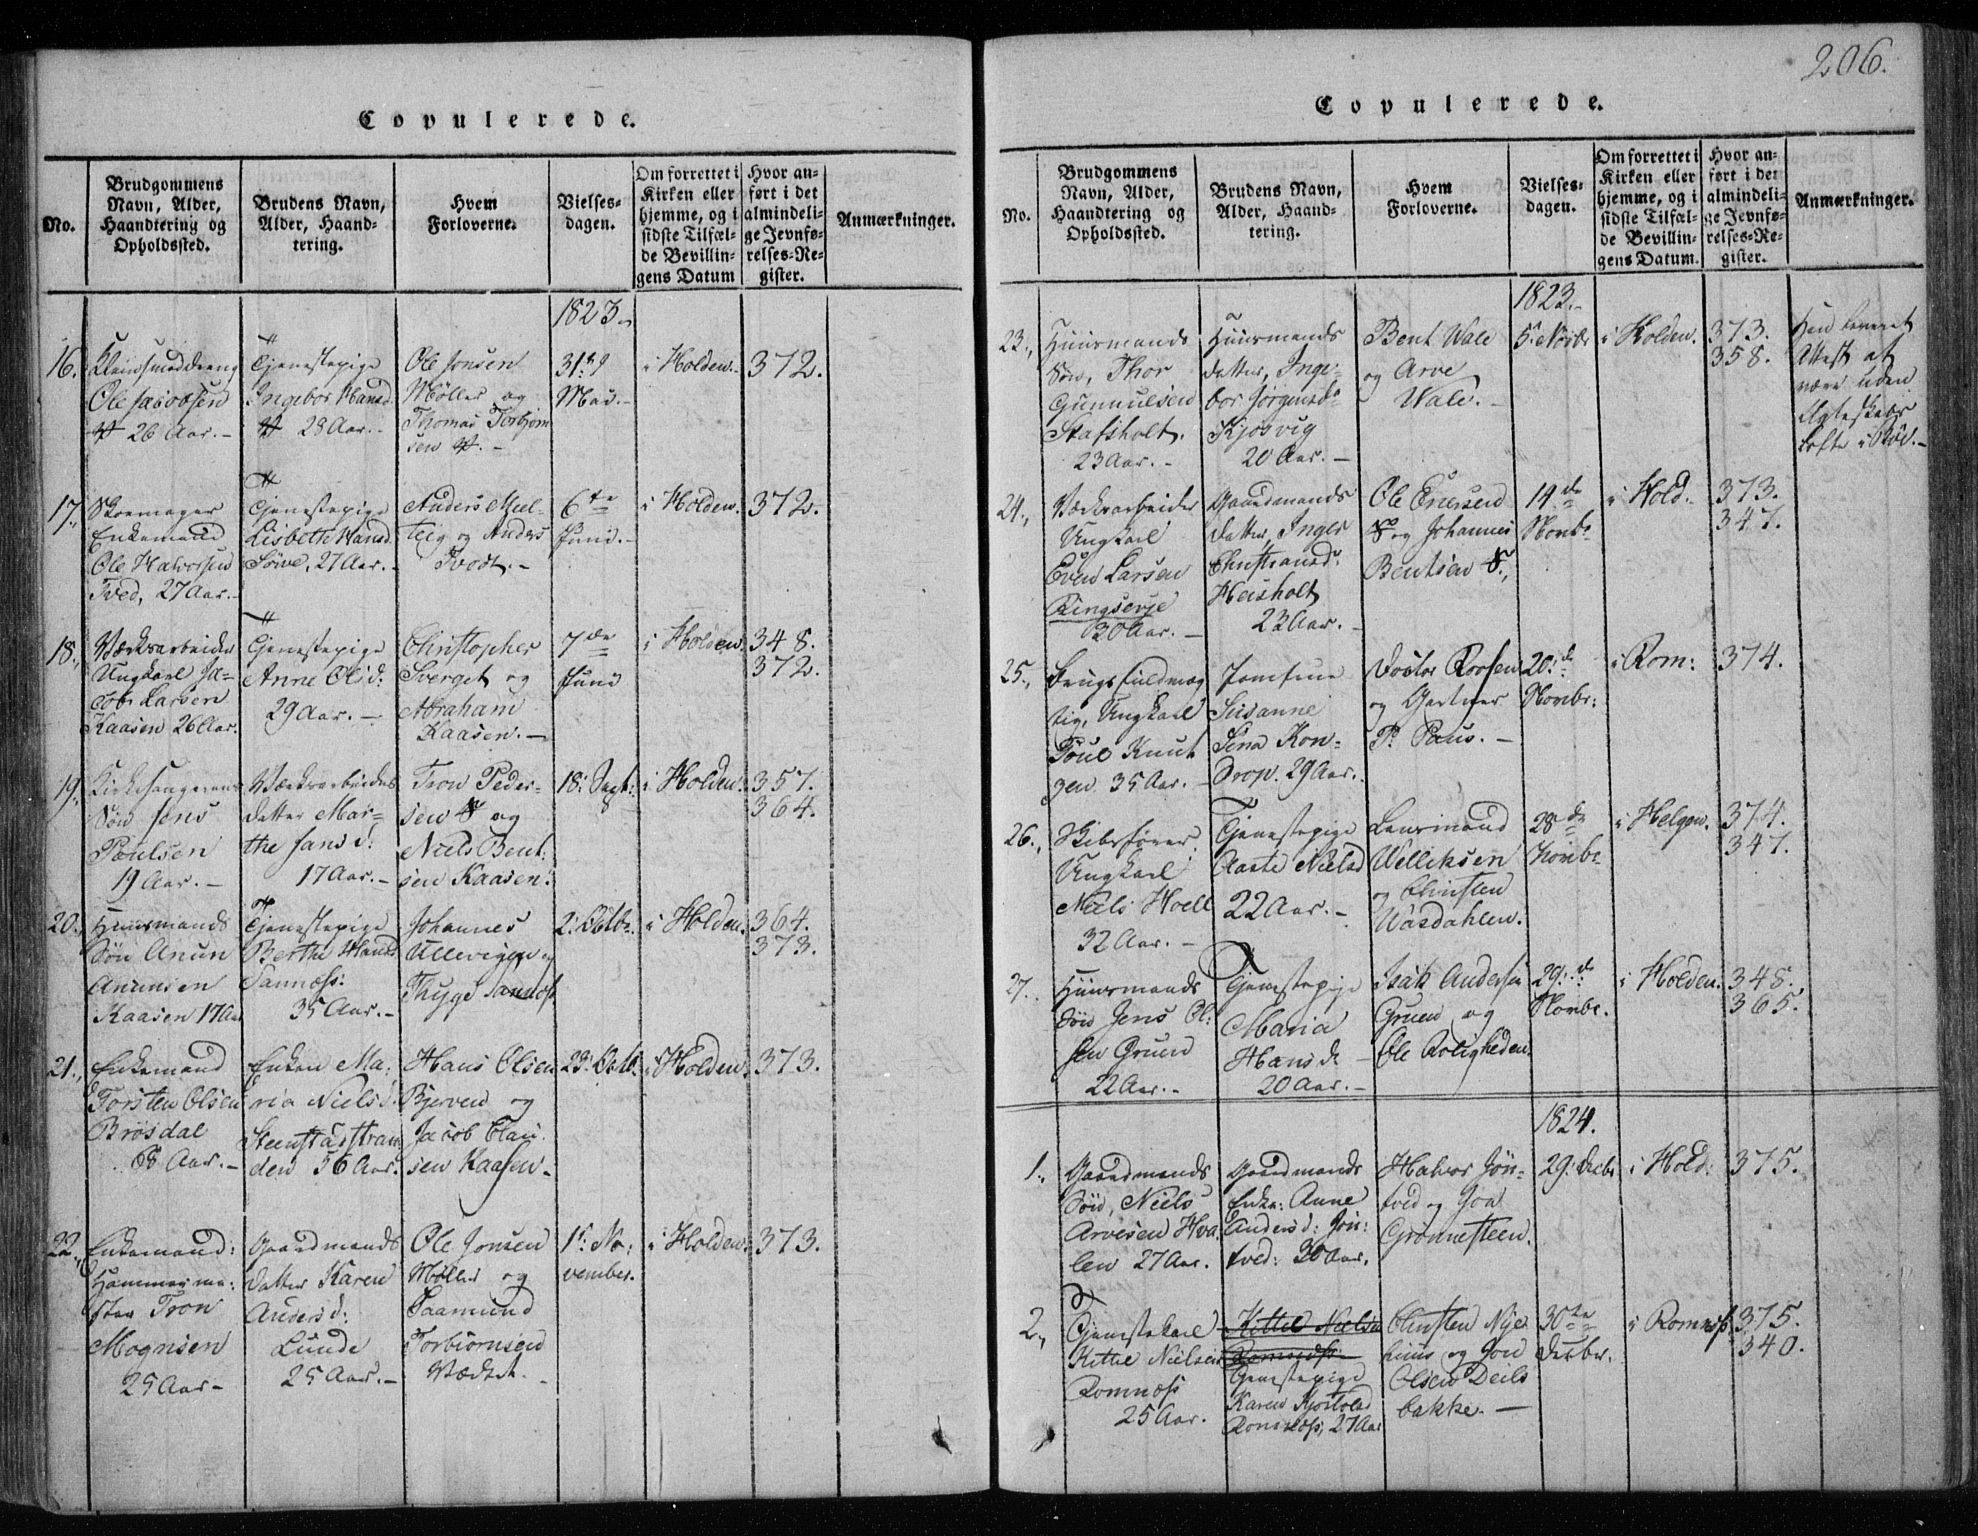 206.
Copulerede.
No.
Brudgommens
Navn, Alder,
Haandtering og
Opholdssted.
Brudens Navn,
Alder, Haand-
tering.
Hvem
Forloverne.
Vielses-
dagen.
Om forrettet i
Kirken eller
hjemme, og i
sidste Tilfæl-
de Bevillin-
gens Datum
Hvor an-
ført i det
almindeli-
ge Jevnfø-
relses-Re-
gister.
Anmærkninger.
1823.
16.
Ole Jacobsen
26 Aar.
Tjenestepige
Ingebor Hansd
28 Aar.
Ole Jonsen
Møller og
Thomas Torbjørn
sen
31
Mai.
i Holden.
372.
17.
Skomager
Enkemand
Ole Halvorsen
Tved, 27 Aar.
Tjenestepige
Lisbeth Hansd
Søive, 27 Aar.
Anders Mæl-
teig og Anders
Tvedt.
6te
Juni.
i Holden.
372.
18.
Værksarbeider
Ungkarl Ja-
cob Larsen
Kaasen 26 Aar.
Tjenestepige
Anne Olsd:
29 Aar.
Christopher
Sverget og
Abraham
Kaasen.
7de
Juni
i Holden.
348.
372.
19.
Kirkesangerens
Søn Jens
Poulsen
19 Aar.
Værksarbeiders
datter Mar-
the Jansd:
17 Aar.
Tron Peder-
sen og
Niels Bent-
sen Kaasen.
18: Sept:
i Holden.
357.
364.
20.
Huusmands
Søn Anun
Anunsen
Kaasen 17 Aar
Tjenestepige
Berthe Hansd
Sannæss:
35 Aar.
Johannes
Ullevigen og
Thyge Sannæss
2: Octbr.
i Holden.
364.
373.
21.
Enkemand
Torsten Olsen
Brøsdal
68 Aar.
Enken Ma-
ria Nielsd:
Steenstadstran
den 56 Aar.
Hans Olsen
Bjerven og
Jacob Clau-
sen Kaasen
23: Octb.
i Holden.
373.
22.
Enkemand:
Hammerme-
ster Tron
Mognsen
25 Aar
Gaardmands
datter Karen
Andersd:
Lunde
25 Aar.
Ole Jonsen
Møller og
Saamund
Torbiørnsen
Vædset.
1: No-
vember.
i Holden.
373.
Copulerede.
No.
Brudgommens
Navn, Alder,
Haandtering og
Opholdssted.
Brudens Navn,
Alder, Haand-
tering.
Hvem
Forloverne.
Vielses-
dagen.
Om forrettet i
Kirken eller
hjemme, og i
sidste Tilfæl-
de Bevillin-
gens Datum.
Hvor an-
ført i det
almindeli-
ge Jevnfø-
relses-Re-
gister.
Anmærkninger.
1823.
23.
Huusmands
Søn, Thor
Gunnulsen
Stafsholt.
23 Aar.
Huusmands
datter, Inge-
bor Jørgensd
Kjøsvig
20 Aar.
Bent Wale
og Arve
Wale.
5 Novbr
i Holden.
373.
358.
Attest at
være uden
Ægteskabs
24.
Værksarbeider
Ungkarl
Even Larsen
Ringsevje
30 Aar.
Gaardmands
datter, Inger
Christiansd:
Heisholt
23 Aar.
Ole Enersen
og Johannes
Bentsen
14de
Novbr
i Hold:
373.
347.
25.
Brugsfuldmæg
tig, Ungkarl
Poul Knut
zen 35 Aar.
Jomfrue
Susanne
Lina Kon-
drop. 29 Aar.
Doctor Roosen
og Gartner
P. Paus.
20de
Novbr:
i Rom:
374.
26.
Skibsfører,
Ungkarl
Niels Hoell
32 Aar.
Tjenestepige
Aaste Nielsd
22 Aar.
Lensmand
Wellicksen
og Christen
Wasdahlen.
28de
Novbr
i Helgen.
374.
347.
27.
Huusmands
Søn Jens Ol-
sen Gruen
22 Aar.
Tjenestepige
Maria
Hansd
20 Aar.
Isak Andersen
Gruen og
Ole Roligheden.
29de
Novbr.
i Holden.
348.
365.
1824.
1.
Gaardmands
Søn, Niels
Arvesen Hva
len 27 Aar.
Gaardmands
Enke: Anne
Andersd: Jøn-
tved: 30 Aar.
Halvor Jøn-
tved og Joa
Grønnesteen.
29: Decbr
i Hold:
375.
2.
Tjenestekarl
Kittil Nielsen
Romnæss
25 Aar.
Kittil Nielsen
Romnæss
Tjenestepige
Karen Kjostolsd
Romnæss, 27 Aar
Christen Nye
huus og Jon
Olsen Deils
bakke.
30te
Decbr.
i Romnæss
375.
340.